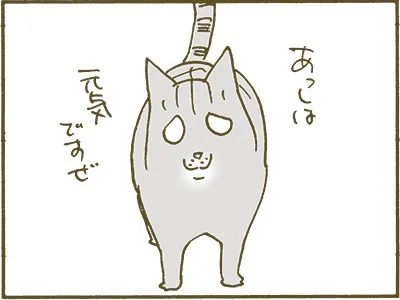 あっしは
元気
ですぜ